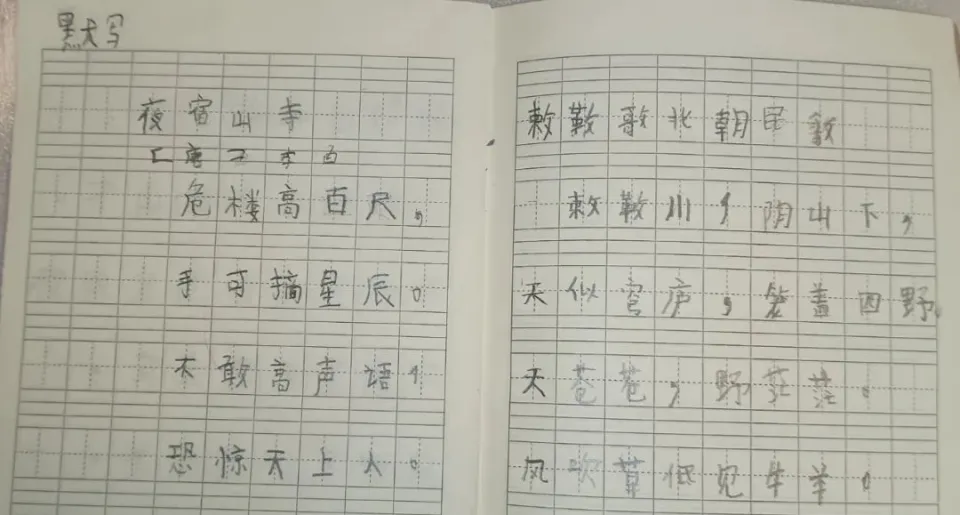 默写
夜宿山寺
[唐]李白
危楼高百尺，
手可摘星辰。
不敢高声语，
恐惊天上人。
敕勒歌北朝民歌
敕勒川，阴山下，
天似穹庐，笼盖四野。
天苍苍，野茫茫。
风吹草低见牛羊。